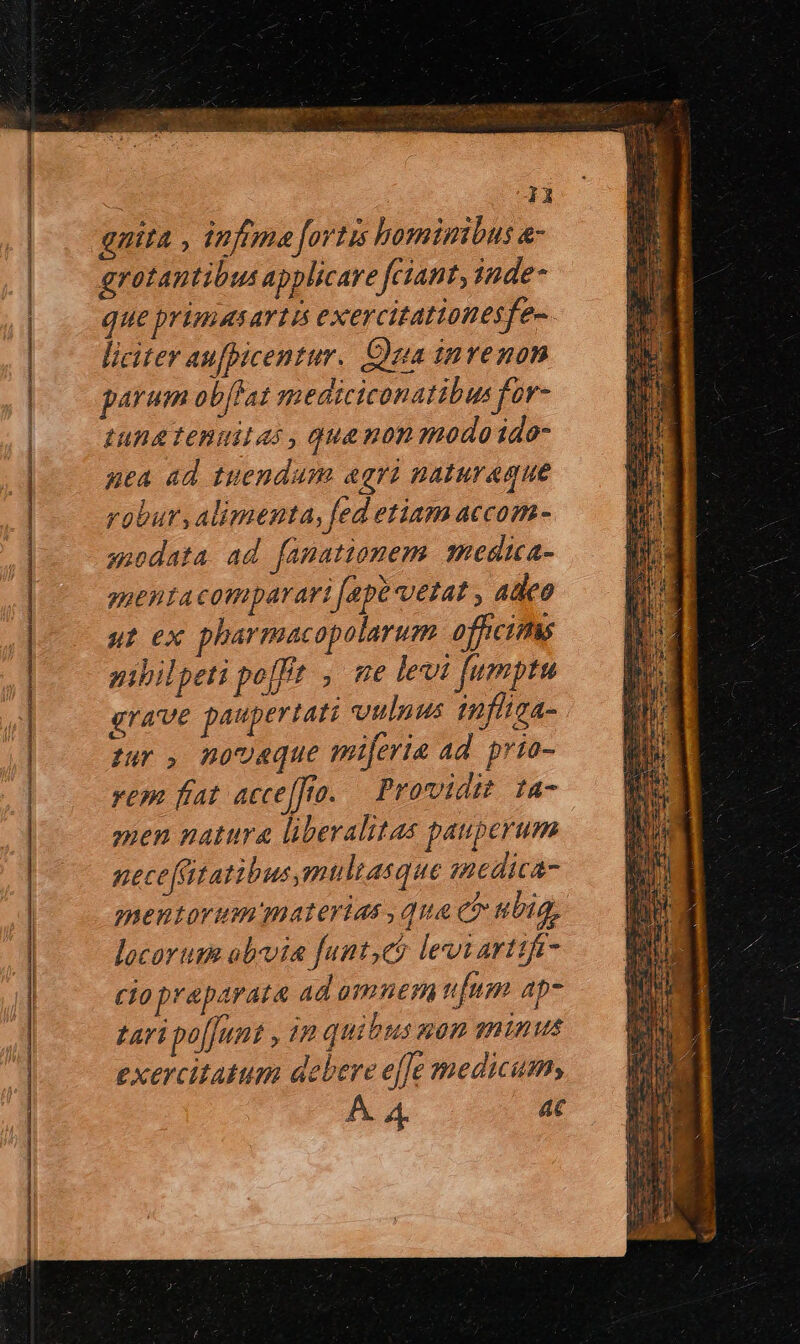 11
gnita , infimæ ſortis hominibus æ-
grotantibus applicare ſciant, inde-
que primas artis exercitationes fe-
liciter auſpicentur. Qua in re non
parum obſtat mediciconatibus for-
tunæ tenuitas, quæ non modo ido-
nea ad tuendum ægri naturæque
robur, alimenta, ſed etiam accom-
modata ad ſanationem medica-
menta comparari ſæpè vetat , adeo
ut ex pharmacopolarum officinis
nihil peti poſſit , ne levi ſumptu
grave paupertati vulnus infliga-
tur , novæque miſeriæ ad prio-
rem fiat acceſſio. Providit ta-
men naturæ liberalitas pauperum
neceſſitatibus, multasque medica-
mentorum materias, quæ & ubiq,
locorum obviæ ſunt, & levi artifi-
cio præparatæ ad omnem uſum ap-
tari poſſunt , in quibus non minus
exercitatum debere eſſe medicum,
A 4 ac